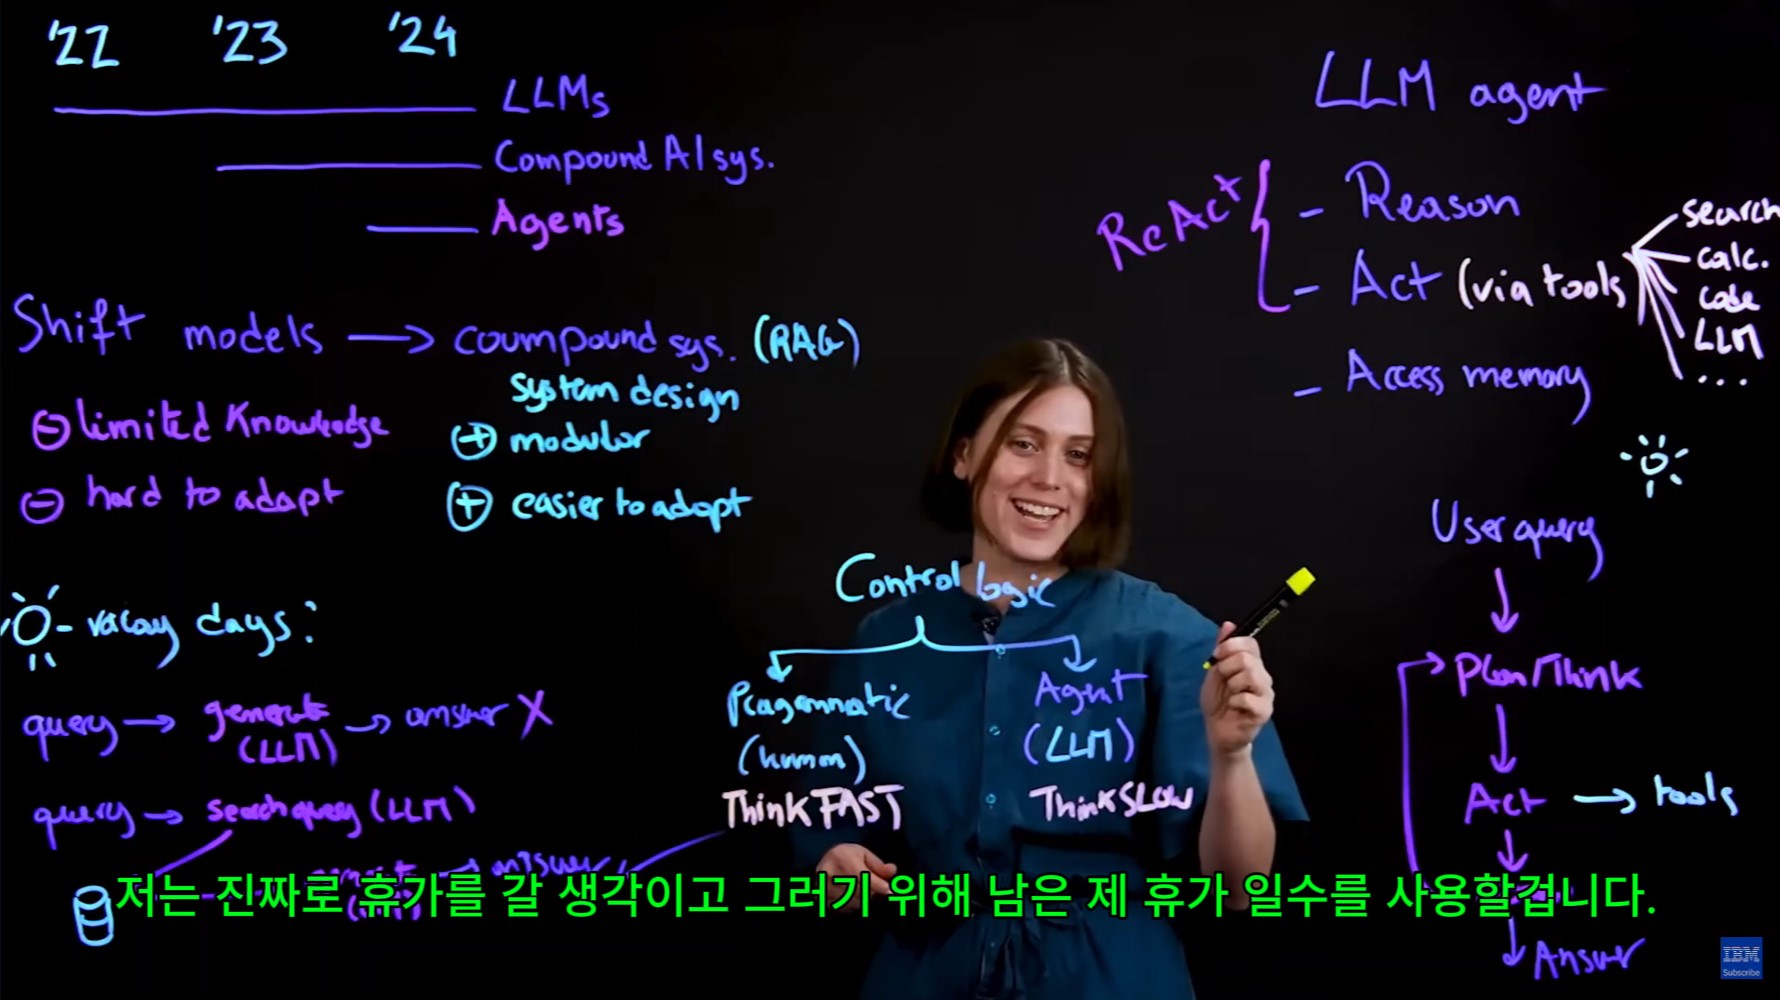 '22 '23 '24
LLMs
Compound AI sys.
Agents
Shift models → coumpound sys. (RAG)
system design
⊖ limited Knowledge
⊕ modular
⊖ hard to adapt
⊕ easier to adopt
vacay days:
query → generate → answer X
(LLM)
query → search query (LLM)
answer
Control logic
Pragammatic
(human)
Think FAST
Agent
(LLM)
Think SLOW
LLM agent
ReAct
- Reason
- Act (via tools
search
calc.
code
LLM
...
- Access memory
User query
Plan/Think
Act → tools
Answer
저는 진짜로 휴가를 갈 생각이고 그러기 위해 남은 제 휴가 일수를 사용할겁니다.
IBM
Subscribe